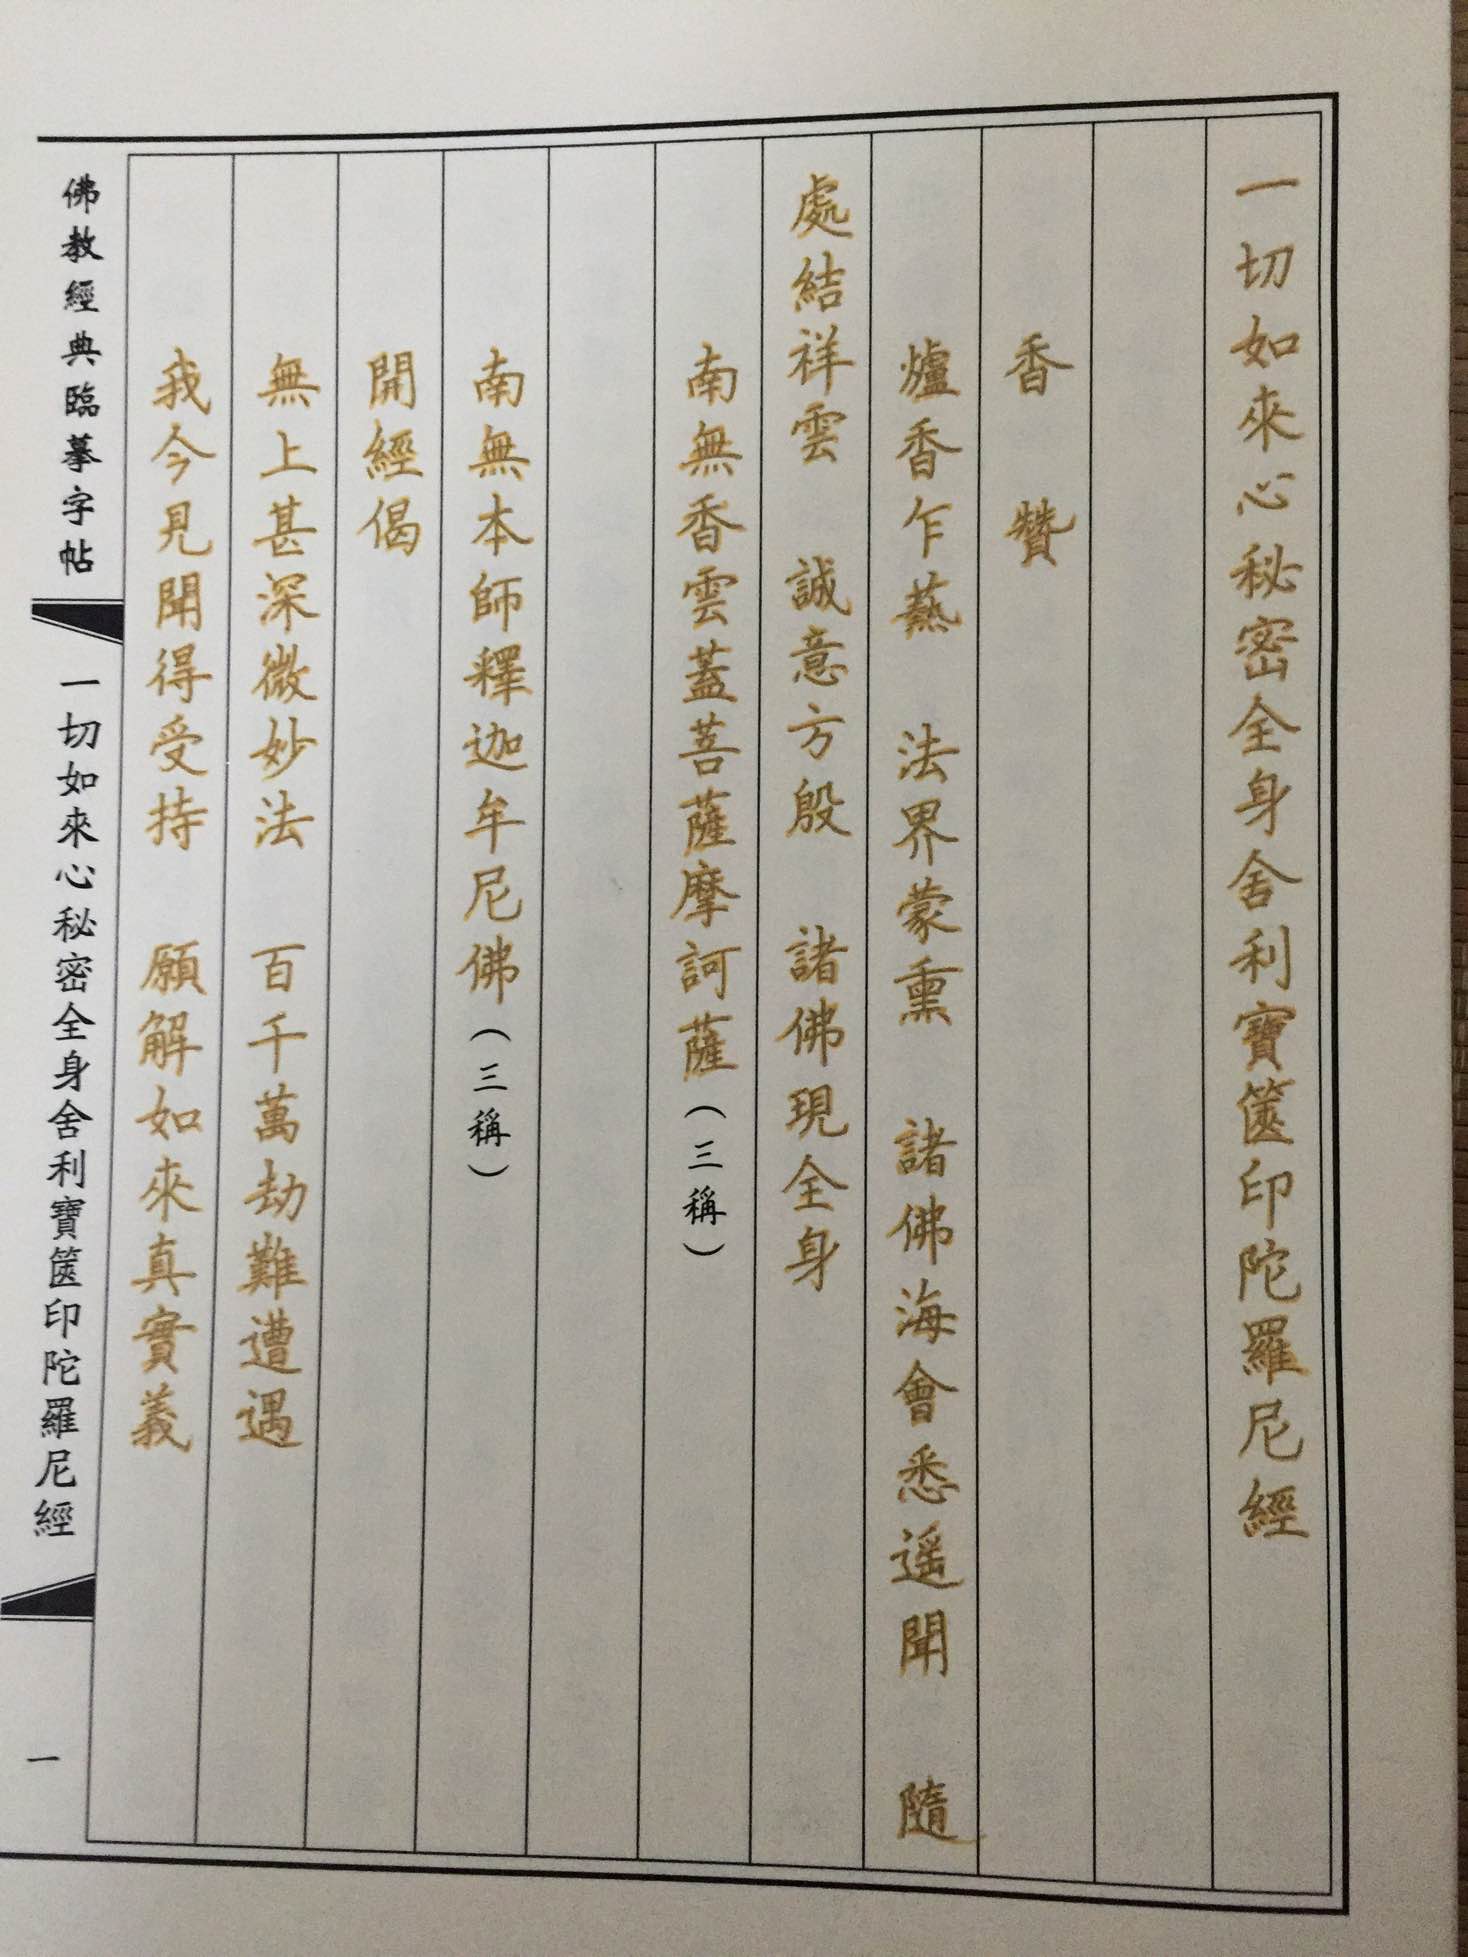 一切如來心秘密全身舍利寶篋印陀羅尼經
香 贊
爐香乍爇 法界蒙熏 諸佛海會悉遥聞 隨
處結祥雲 誠意方殷 諸佛現全身
南無香雲蓋菩薩摩訶薩（三稱）
南無本師釋迦牟尼佛（三稱）
開經偈
無上甚深微妙法 百千萬劫難遭遇
我今見聞得受持 願解如來真實義
佛教經典臨摹字帖 一切如來心秘密全身舍利寶篋印陀羅尼經 一